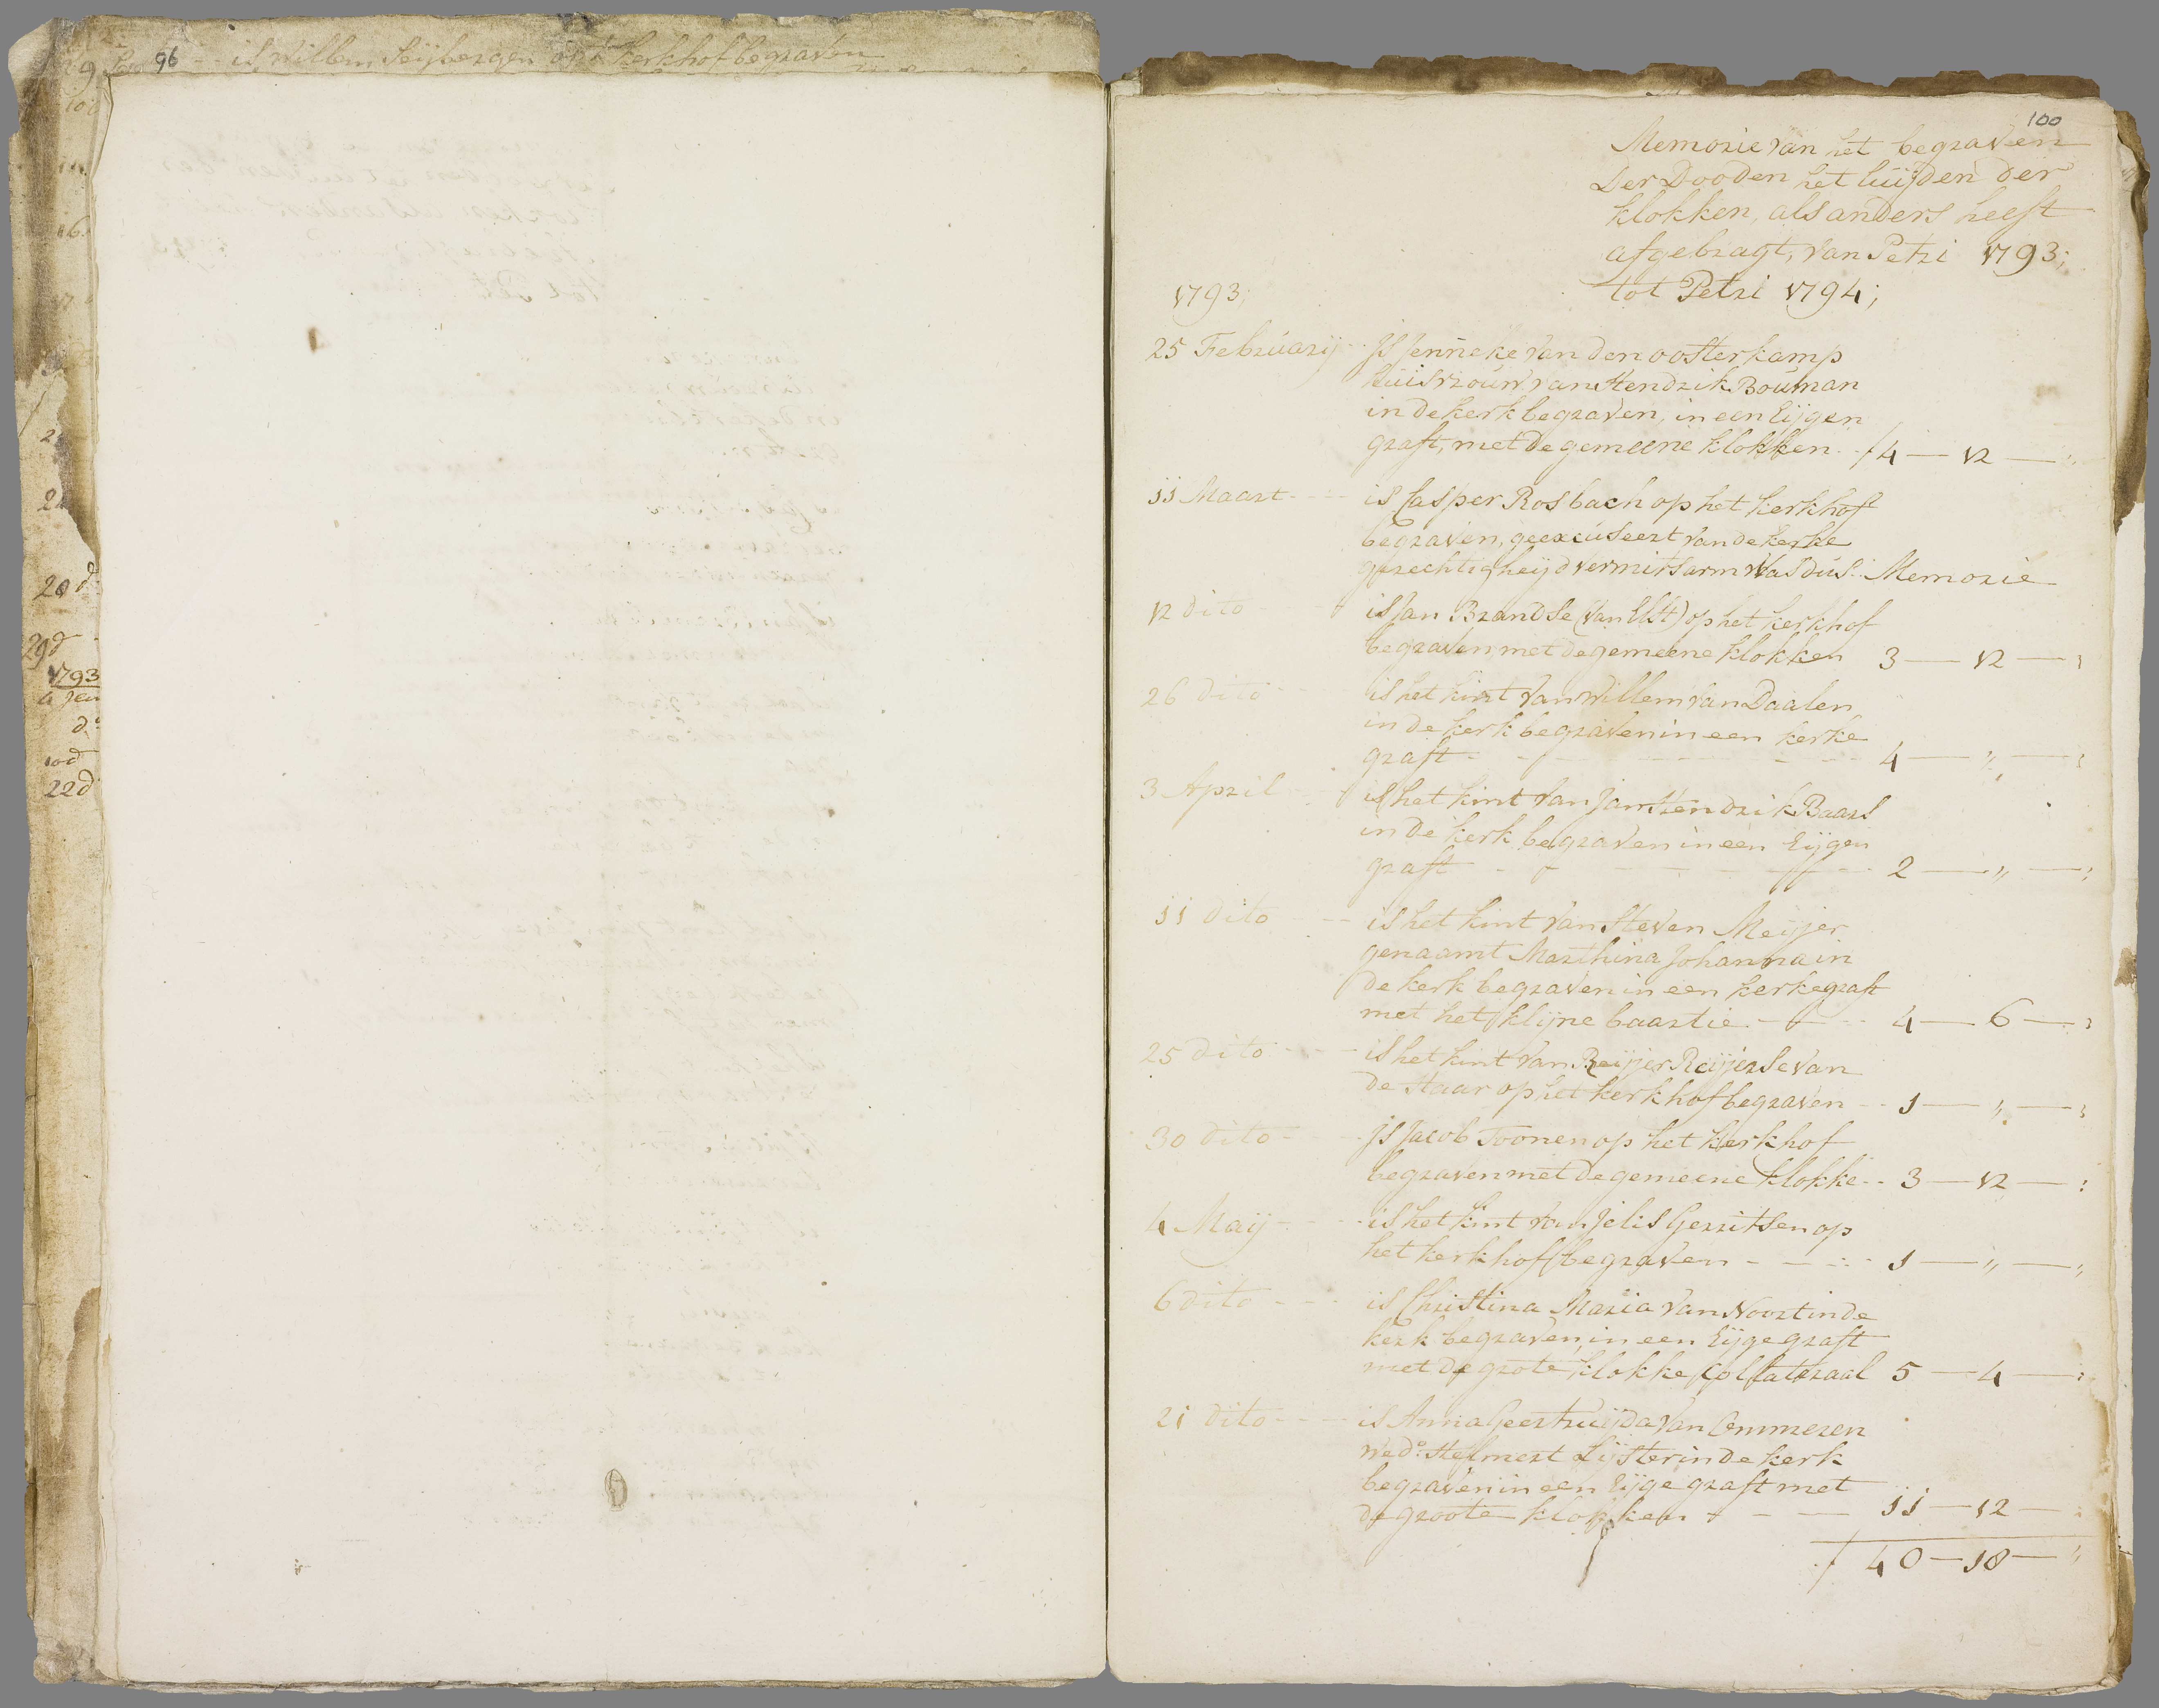 96 -- is willem Seijbergen op't kerkhof begraven
29
10
16
17
28 d
29 d
1793
4 Jan
d:
10 d
22 d
100
Memorie van het begraven
Der Dooden het luijden der
klokken, als anders heeft
afgebragt, van Petri 1793;
tot Petri 1794;
1793;
25 Februarij -- Is Jenneke van den oosterkamp
huisvrouw van Hendrik Bouman
in de kerk begraven, in een Eijgen
graft, met de gemeene klokken -- ƒ 4 — 12 — "
11 Maart -- is Casper Rosbach op het kerkhof
begraven, geexcuseert van de kerke
gerechtigheijd vermits arm was dus: Memorie
12 dito -- is Jan Brandse (van Elst) op het kerkhof
begraven met de gemeene klokken 3 — 12 — "
26 dito -- is het kint van Willem van Daalen
in de kerk begraven in een kerke
graft - - - - 4 — " — "
3 April -- is het kint van Jan Hendrik Baars
in de kerk begraven in een Eijgen
graft - - - - 2 — " — "
11 dito -- is het kint van Steven Meijjer
genaamt Marthina Johanna in
de kerk begraven in een kerkegraft
met het klijne baartie - - - 4 — 6 — "
25 dito - - - is het kint van Reijjer Reijjerse van
de Haar op het kerkhof begraven -- 1 — " — "
30 dito - - - Is Jacob Toonen op het kerkhof
begraven met de gemeene klokke -- 3 — 12 — "
4 Maij - - - is het kint van Jelis Gerritsen op
het kerkhoff begraven - - - - 1 — " — "
6 dito - - - is Christina Maria van Noort in de
kerk begraven, in een Eijge graft
met de grote klokke Collateraal 5 — 4 — "
21 dito - - - is Anna Geertruijda van Ommeren
wed: Helmert Lijster in de kerk
begraven in een Eijge graft met
de groote klokken - - - 11 — 12 — "
ƒ 40 — 18 — "